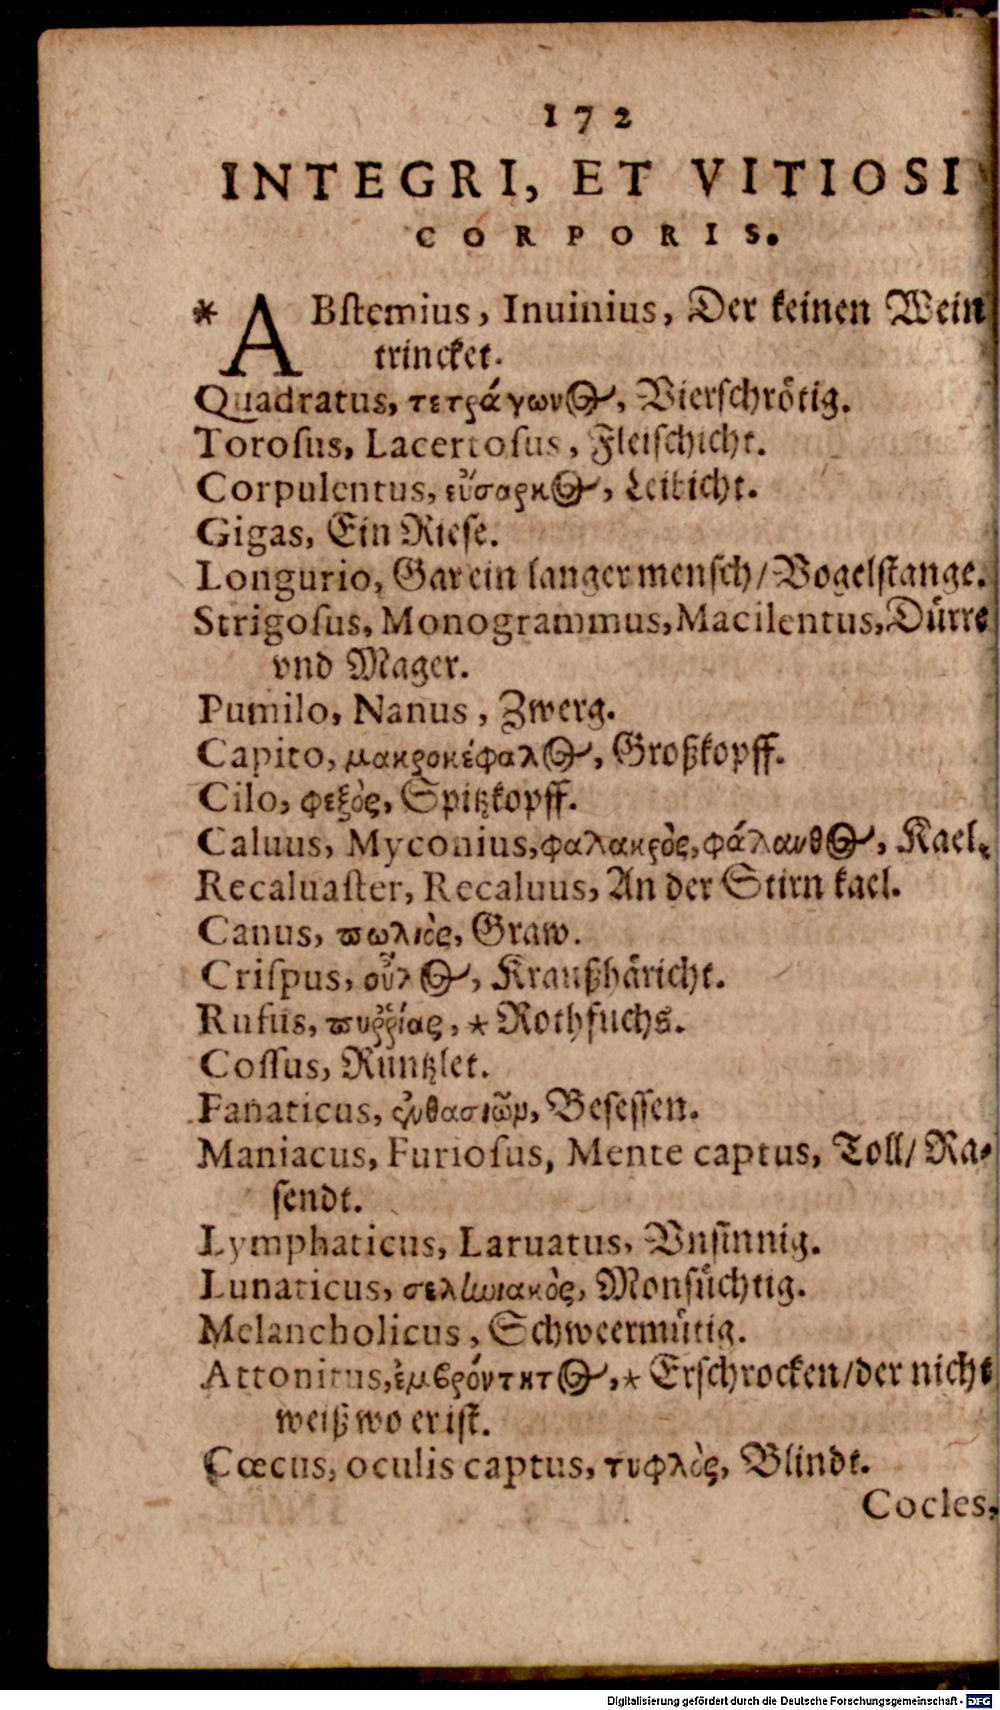 172
INTEGRI, ET VITIOSI
CORPORIS.
* ABſtemius, Inuinius, Der keinen Wein
trincket.
Quadratus, τετράγωνος, Vierſchrötig.
Toroſus, Lacertoſus, Fleiſchicht.
Corpulentus, εὔσαρκος, Leibicht.
Gigas, Ein Rieſe.
Longurio, Gar ein langer menſch/Vogelſtange.
Strigoſus, Monogrammus, Macilentus, Dürre
vnd Mager.
Pumilo, Nanus, Zwerg.
Capito, μακροκέφαλος, Großkopff.
Cilo, φεξὸς, Spitzkopff.
Caluus, Myconius, φαλακρὸς, φάλανθος, Kael.
Recaluaſter, Recaluus, An der Stirn kael.
Canus, πωλιὸς, Graw.
Criſpus, οὖλος, Kraußhäricht.
Rufus, πυῤῥίας, * Rothfuchs.
Coſſus, Runtzlet.
Fanaticus, ἐνθασιῶν, Beſeſſen.
Maniacus, Furioſus, Mente captus, Toll/ Ra-
ſendt.
Lymphaticus, Laruatus, Vnſinnig.
Lunaticus, σεληνιακὸς, Monſüchtig.
Melancholicus, Schweermütig.
Attonitus, ἐμβρόντητος, * Erſchrocken/der nicht
weiß wo er iſt.
Cœcus, oculis captus, τυφλὸς, Blindt.
Cocles,
Digitalisierung gefördert durch die Deutsche Forschungsgemeinschaft - DFG